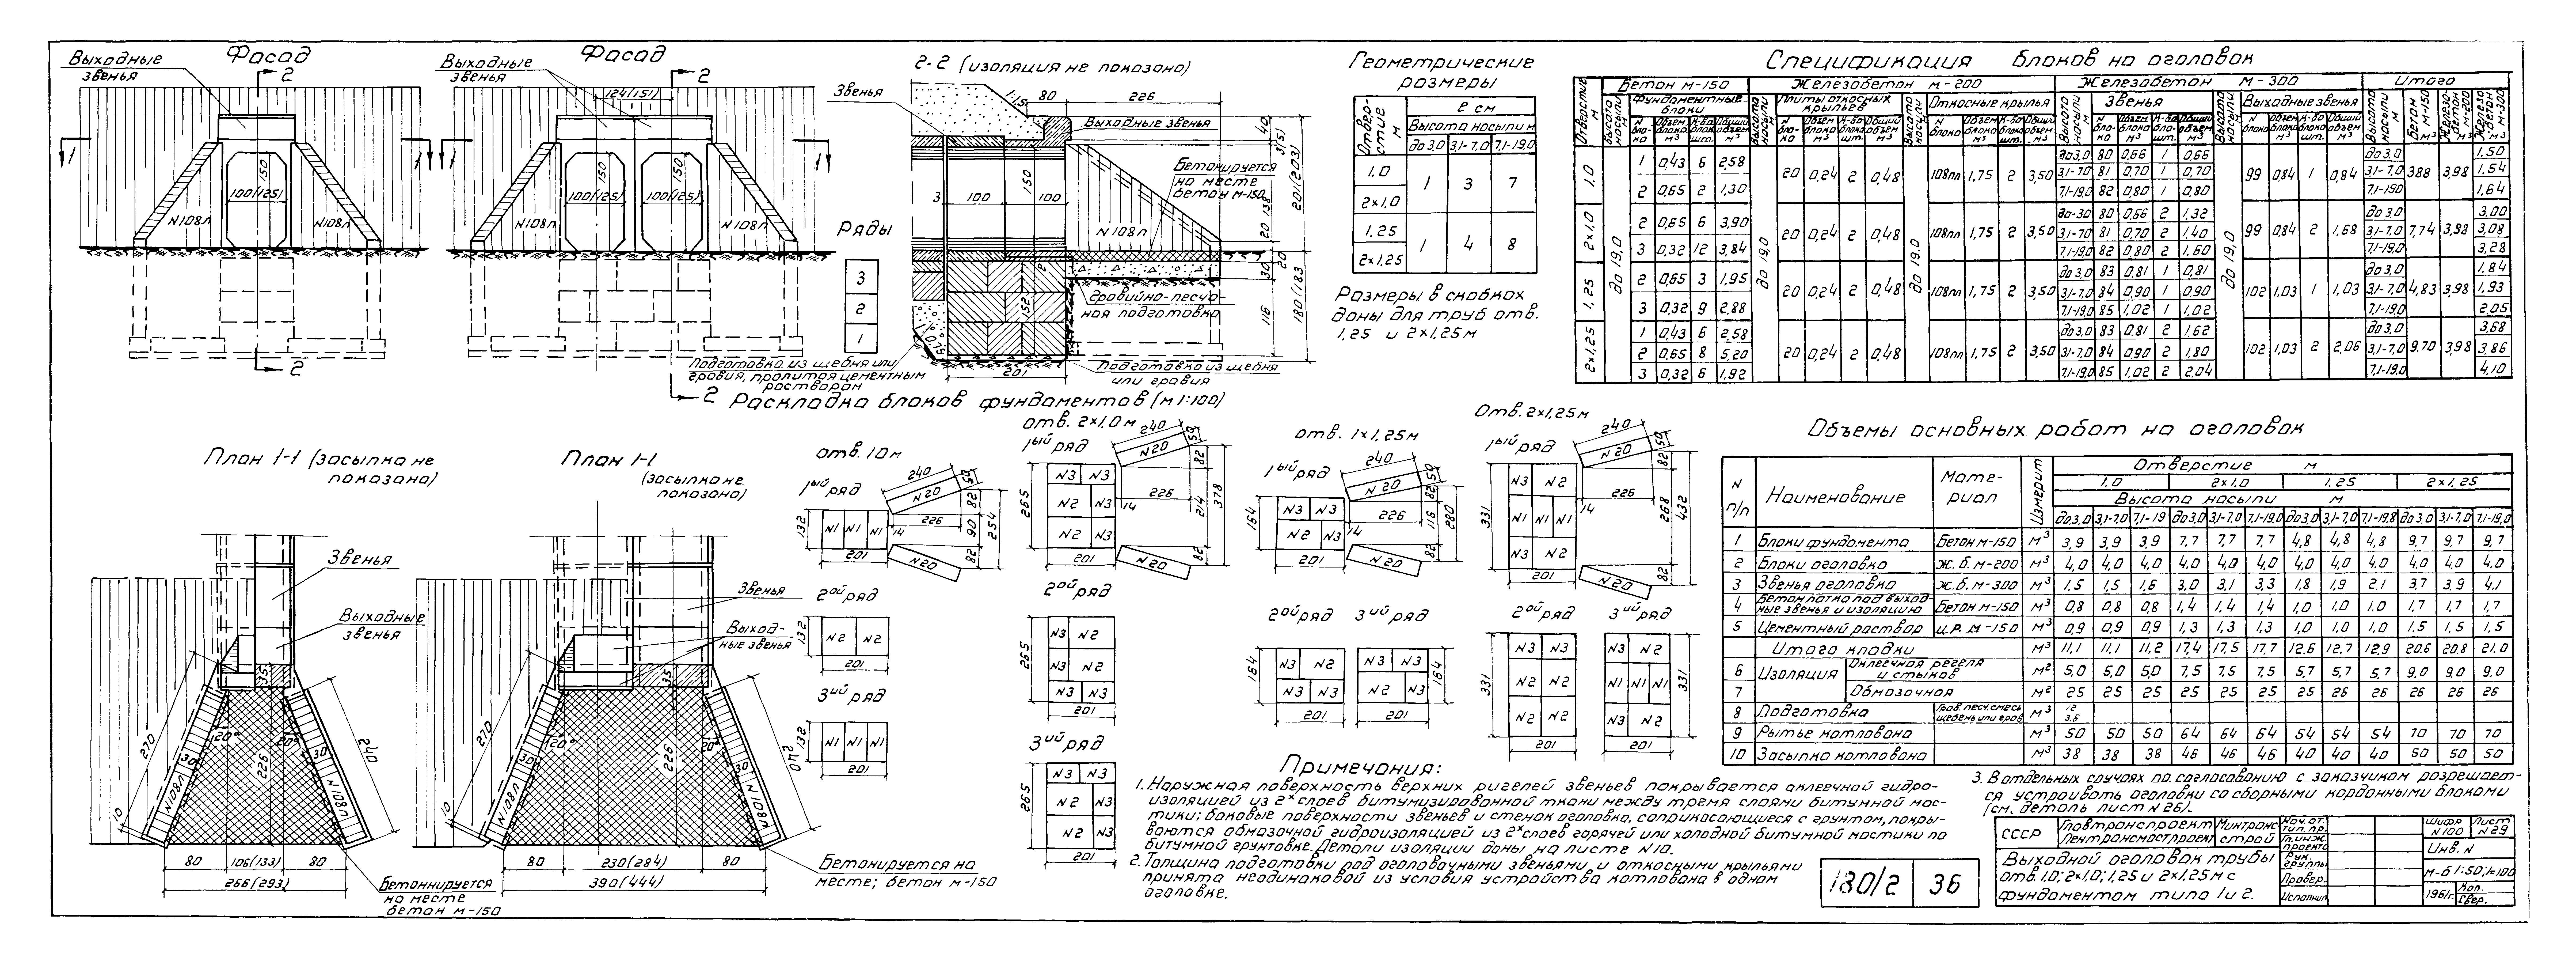 Фасад
Выходные
звенья
2
100(125)
150
N108л
N108л
1
1
2
Фасад
Выходные
звенья
2
124(151)
150
150
100(125)
100(125)
N108л
N108л
1
1
2
Ряды
3
2
1
2-2 (изоляция не показана)
Звенья
1:1,5
80
226
Выходные звенья
40
3(5)
201(203)
Бетонируется
на месте
бетон м-150
3
100
150
100
138
20
N108л
20
30
152
116
180/183
гравийно-песча-
ная подготовка
1:0,75
201
Подготовка из щебня или
гравия, пролитая цементным
раствором
Подготовка из щебня
или гравия
Геометрические
размеры
Отвер-
стие
м
e см
Высота насыпи м
до 3,0 3,1-7,0 7,1-19,0
1,0
2×1,0
1 3 7
1,25
2×1,25
1 4 8
Размеры в скобках
даны для труб отв.
1,25 и 2×1,25м
Спецификация блоков на оголовок
Отверстие м
Высота насыпи м
Бетон м-150
Железобетон м-200
Железобетон м-300
Итого
Фундаментные блоки
Плиты откосных крыльев
Откосные крылья
Звенья
Выходные звенья
N блока Объем блока м³ К-во блоков шт. Общий объем м³
Бетон м-150 м³
Железобетон м-200 м³
Железобетон м-300 м³
1,0 до 19,0
1 0,43 6 2,58
2 0,65 2 1,30
20 0,24 2 0,48
108пл 1,75 2 3,50
до 3,0 80 0,66 1 0,66
3,1-7,0 81 0,70 1 0,70
7,1-19,0 82 0,80 1 0,80
99 0,84 1 0,84
до 3,0 1,50
3,1-7,0 3,88 3,98 1,54
7,1-19,0 1,64
2×1,0
2 0,65 6 3,90
3 0,32 12 3,84
20 0,24 2 0,48
108пл 1,75 2 3,50
до-3,0 80 0,66 2 1,32
3,1-7,0 81 0,70 2 1,40
7,1-19,0 82 0,80 2 1,60
99 0,84 2 1,68
до 3,0 3,00
3,1-7,0 7,74 3,98 3,08
7,1-19,0 3,28
1,25
2 0,65 3 1,95
3 0,32 9 2,88
20 0,24 2 0,48
108пл 1,75 2 3,50
до 3,0 83 0,81 1 0,81
3,1-7,0 84 0,90 1 0,90
7,1-19,0 85 1,02 1 1,02
102 1,03 1 1,03
до 3,0 1,84
3,1-7,0 4,83 3,98 1,93
7,1-19,0 2,05
2×1,25
1 0,43 6 2,58
2 0,65 8 5,20
3 0,32 6 1,92
20 0,24 2 0,48
108пл 1,75 2 3,50
до 3,0 83 0,81 2 1,62
3,1-7,0 84 0,90 2 1,80
7,1-19,0 85 1,02 2 2,04
102 1,03 2 2,06
до 3,0 3,68
3,1-7,0 9,70 3,98 3,86
7,1-19,0 4,10
План 1-1 (засыпка не
показана)
Звенья
Выходные
звенья
35
20°
20°
270
226
240
30
30
N108л
N108л
10
80 106(133) 80
266(293)
Бетоннируется
на месте
бетон м-150
План 1-1
(засыпка не
показана)
Звенья
Выход-
ные звенья
35
20°
20°
270
226
240
30
30
N108л
N108л
10
80 230(284) 80
390(444)
Бетонируется на
месте; бетон м-150
Раскладка блоков фундаментов (м 1:100)
отв. 1,0м
1ый ряд
132
N1 N1 N1
201
240
50
N20
226
14
82
90
82
254
N20
2ой ряд
132
N2 N2
201
3ий ряд
132
N1 N1 N1
201
отв. 2×1,0м
1ый ряд
265
N3 N3
N2 N3
N2 N3
201
240
50
N20
226
14
82
214
82
378
N20
2ой ряд
265
N3 N2
N3 N2
N3 N3
201
3ий ряд
265
N3 N3
N2 N3
N2 N3
201
отв. 1×1,25м
1ый ряд
164
N3 N3
N2 N3
201
240
50
N20
226
14
82
116
82
280
N20
2ой ряд
164
N3 N2
N3 N3
201
3ий ряд
N3 N3
N2 N3
164
201
Отв. 2×1,25м
1ый ряд
331
N3 N2
N1 N1 N1
N3 N2
201
240
50
N20
226
14
82
268
82
432
N20
2ой ряд
331
N3 N3
N2 N2
N2 N2
201
3ий ряд
N3 N2
N1 N1 N1
N3 N2
331
201
Объемы основных работ на оголовок
N п/п Наименование Мате-риал Измерит
Отверстие м
1,0 2×1,0 1,25 2×1,25
Высота насыпи м
до 3,0 3,1-7,0 7,1-19 до 3,0 3,1-7,0 7,1-19,0 до 3,0 3,1-7,0 7,1-19,8 до 3,0 3,1-7,0 7,1-19,0
1 Блоки фундамента Бетон м-150 м³ 3,9 3,9 3,9 7,7 7,7 7,7 4,8 4,8 4,8 9,7 9,7 9,7
2 Блоки оголовка Ж.б. м-200 м³ 4,0 4,0 4,0 4,0 4,0 4,0 4,0 4,0 4,0 4,0 4,0 4,0
3 Звенья оголовка Ж.б. м-300 м³ 1,5 1,5 1,6 3,0 3,1 3,3 1,8 1,9 2,1 3,7 3,9 4,1
4 Бетон лотка под выход-ные звенья и изоляцию Бетон м-150 м³ 0,8 0,8 0,8 1,4 1,4 1,4 1,0 1,0 1,0 1,7 1,7 1,7
5 Цементный раствор ц.р. м-150 м³ 0,9 0,9 0,9 1,3 1,3 1,3 1,0 1,0 1,0 1,5 1,5 1,5
Итого кладки м³ 11,1 11,1 11,2 17,4 17,5 17,7 12,6 12,7 12,9 20,6 20,8 21,0
6 Изоляция Оклеечная ригеля и стыков м² 5,0 5,0 5,0 7,5 7,5 7,5 5,7 5,7 5,7 9,0 9,0 9,0
7 Обмазочная м² 25 25 25 25 25 25 25 26 26 26 26 26
8 Подготовка Грав. песч. смесь щебень или грав. м³ 12 3,6
9 Рытье котлована м³ 50 50 50 64 64 64 54 54 54 70 70 70
10 Засыпка котлована м³ 38 38 38 46 46 46 40 40 40 50 50 50
Примечания:
1. Наружная поверхность верхних ригелей звеньев покрывается оклеечной гидро-
изоляцией из 2х слоев битумизированной ткани между тремя слоями битумной мас-
тики; боковые поверхности звеньев и стенок оголовка, соприкасающиеся с грунтом, покры-
ваются обмазочной гидроизоляцией из 2х слоев горячей или холодной битумной мастики по
битумной грунтовке. Детали изоляции даны на листе N10.
2. Толщина подготовки под оголовочными звеньями и откосными крыльями
принята неодинаковой из условия устройства котлована в одном
оголовке.
3. В отдельных случаях по согласованию с заказчиком разрешает-
ся устраивать оголовки со сборными кордонными блоками
(см. деталь лист N26).
180/2 36
СССР Главтранспроект Ленгипротрансмост Минтрансстрой
Выходной оголовок трубы
отв. 1,0; 2×1,0; 1,25 и 2×1,25м с
фундаментом типа 1 и 2.
Нач. от.
Гл. инж. проекта
Рук. группы
Провер.
Исполнил
Шифр N100
Лист N29
Инв. N
М-б 1:50; 1:100
1961г.
Коп.
Свер.